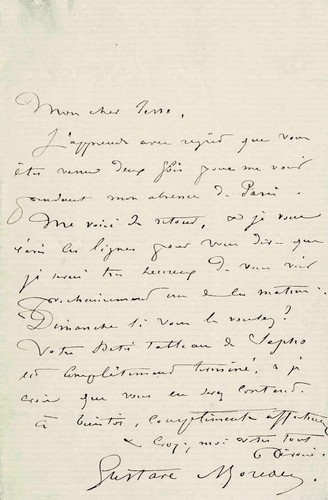 Mon cher
J'apprends avec regret que vous
êtes venu deux fois pour me voir
pendant mon absence de Paris.
Me voici de retour, & je vous
écris ces lignes pour vous dire que
je serai très heureux de vous voir
prochainement un de ces matins.
Dimanche si vous le voulez?
Votre petit tableau de Sapho
est complètement terminé, & je
crois que vous en serez content.
à bientôt, compliments affectueux
& croyez moi votre tout
Gustave Moreau